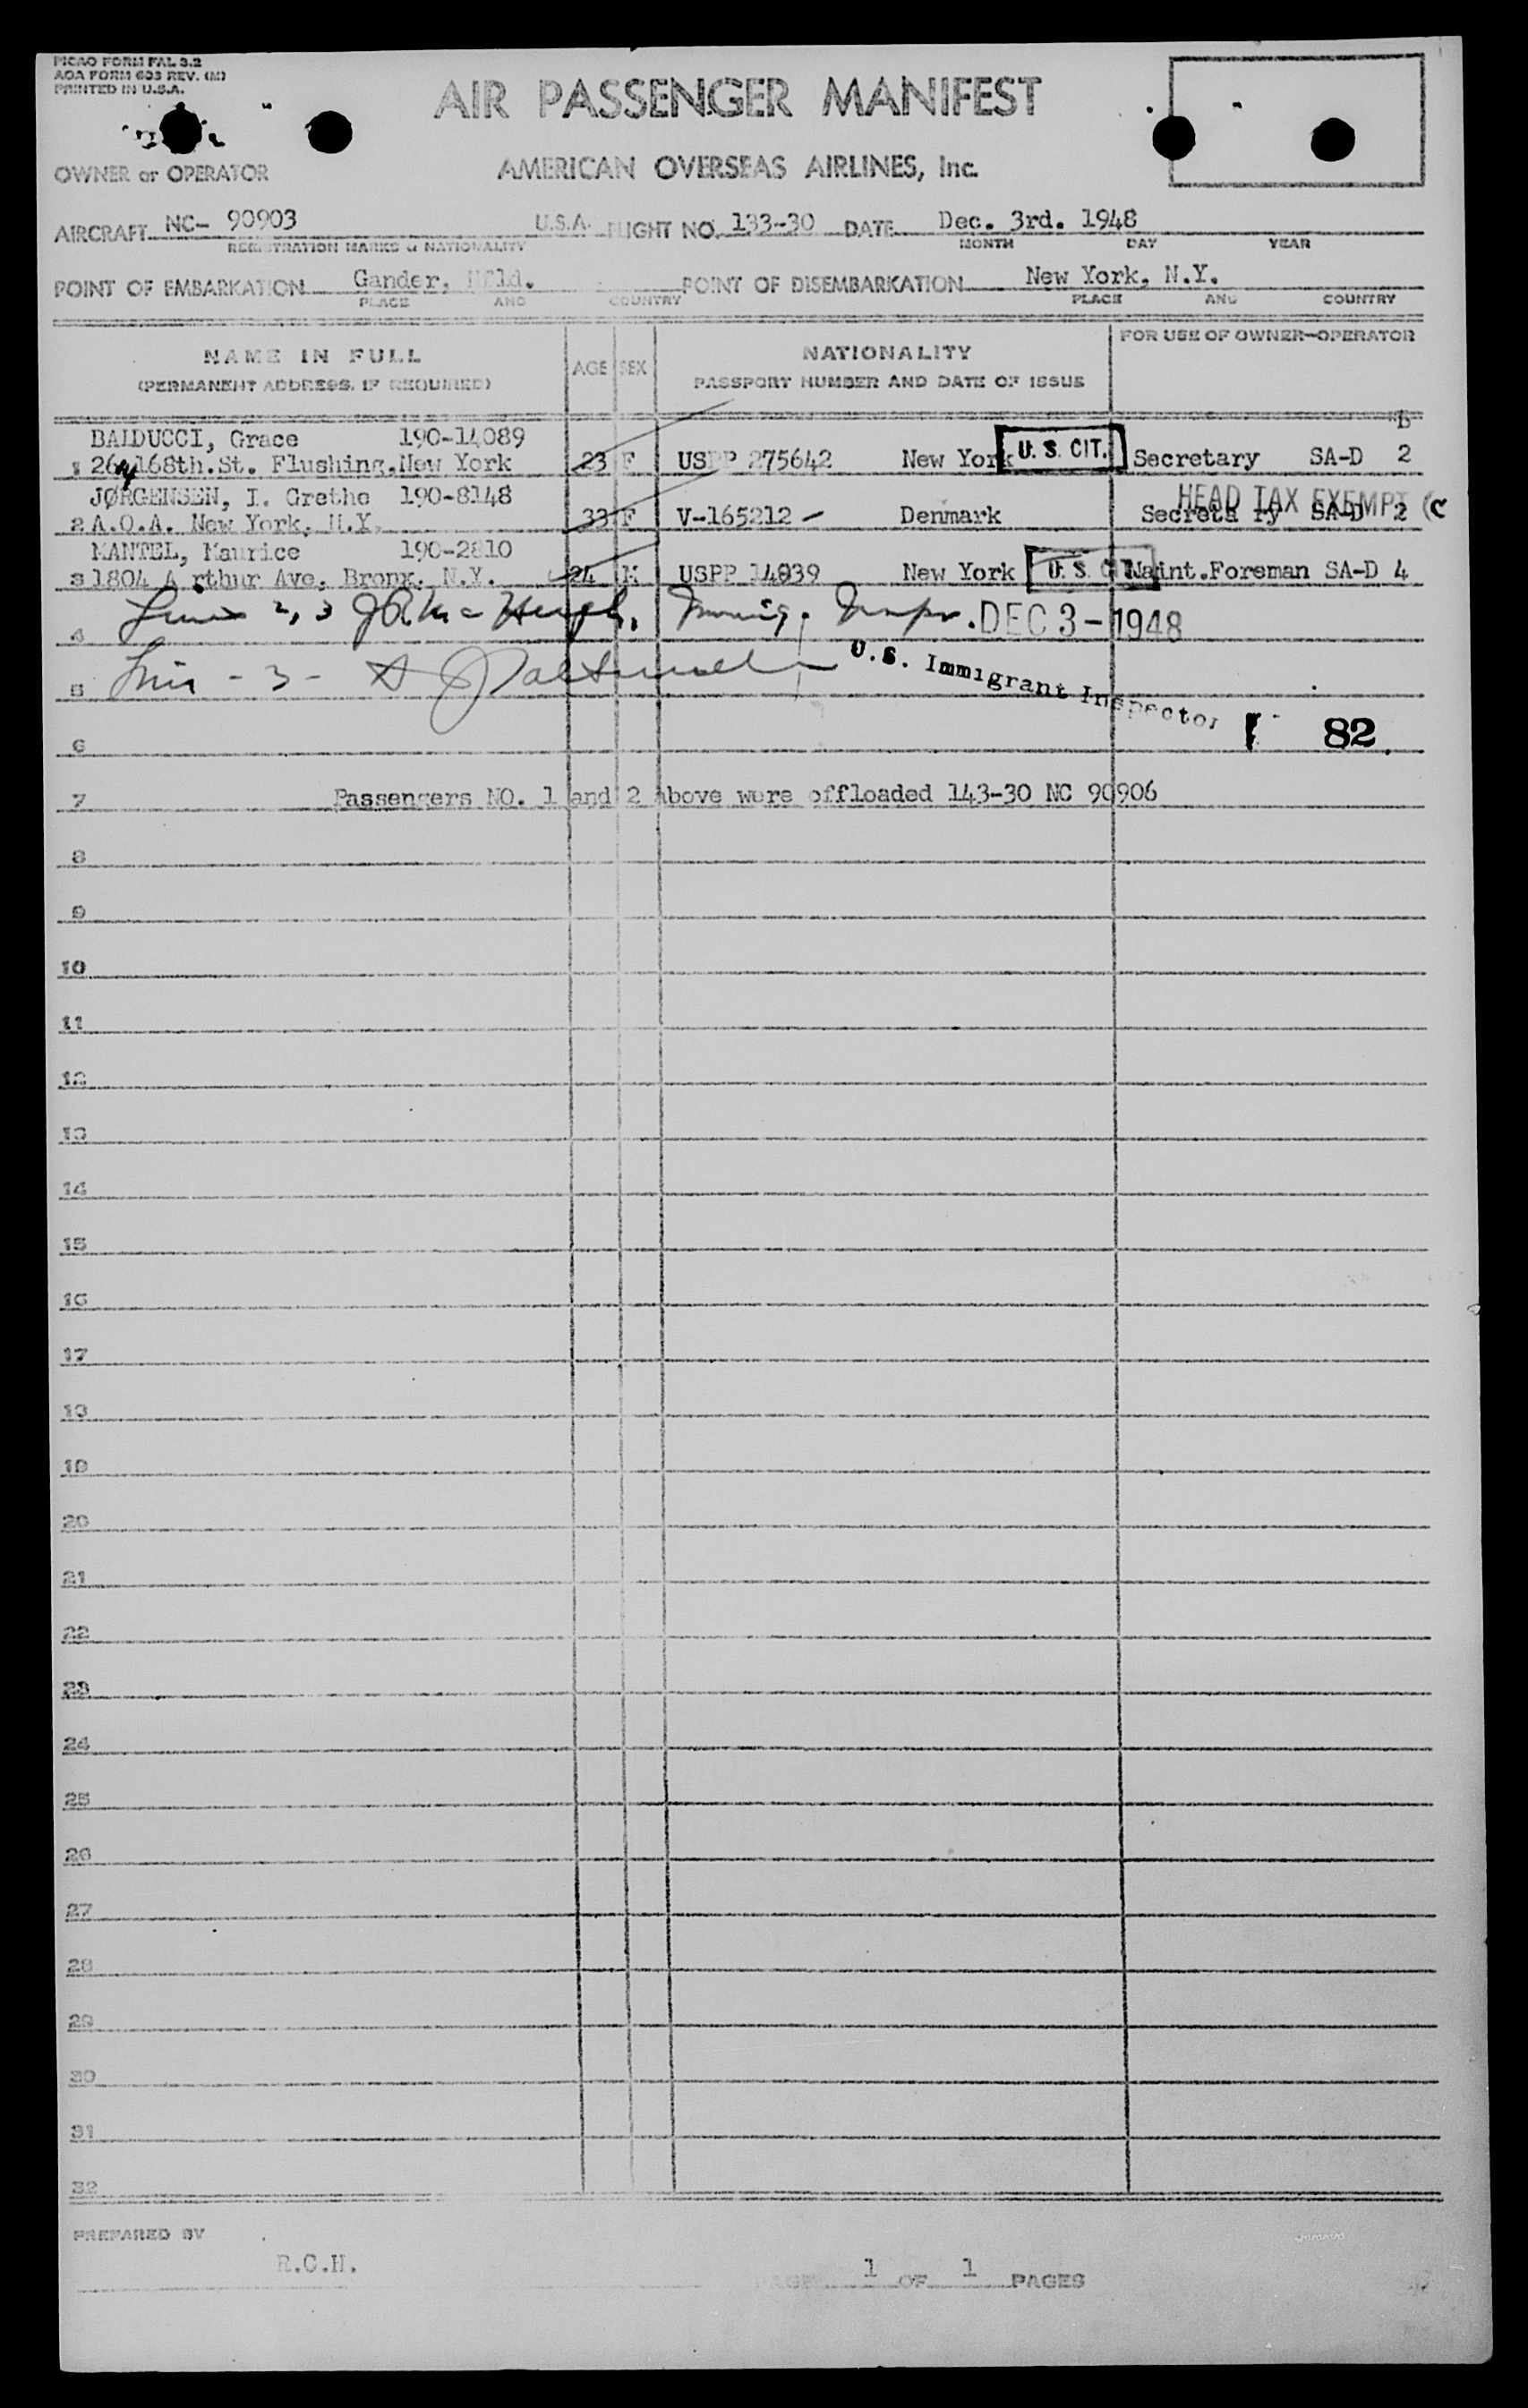 PICAO FORM FAL 3.2
AOA FORM 603 REV. (M)
PRINTED IN U.S.A.
AIR PASSENGER MANIFEST
OWNER or OPERATOR
AMERICAN OVERSEAS AIRLINES, Inc.
AIRCRAFT NC- 90903 U.S.A. FLIGHT NO. 133-30 DATE Dec. 3rd. 1948
REGISTRATION MARKS & NATIONALITY MONTH DAY YEAR
POINT OF EMBARKATION Gander, Nfld. POINT OF DISEMBARKATION New York, N.Y.
PLACE AND COUNTRY PLACE AND COUNTRY
NAME IN FULL AGE SEX NATIONALITY FOR USE OF OWNER-OPERATOR
(PERMANENT ADDRESS, IF REQUIRED) PASSPORT NUMBER AND DATE OF ISSUE
BALDUCCI, Grace 190-14089
1 264 168th.St. Flushing,New York 23 F USPP 275642 New York U.S. CIT. Secretary SA-D 2
JØRGENSEN, I. Grethe 190-8148 HEAD TAX EXEMPT (C
2 A.O.A. New York, N.Y. 33 F V-165212 Denmark Secreta ry SA-D 2
MANTEL, Maurice 190-2810
3 1804 A rthur Ave. Bronx. N.Y. 24 M USPP 14839 New York U.S. CIT. Maint.Foreman SA-D 4
4 Lines 2, 3 Immig. Inspr. DEC 3 - 1948
5 Line - 3 - U.S. Immigrant Inspector
6 82
7 Passengers NO. 1 and 2 above were offloaded 143-30 NC 90906
8
9
10
11
12
13
14
15
16
17
18
19
20
21
22
23
24
25
26
27
28
29
30
31
32
PREPARED BY
R.C.H. PAGE 1 OF 1 PAGES